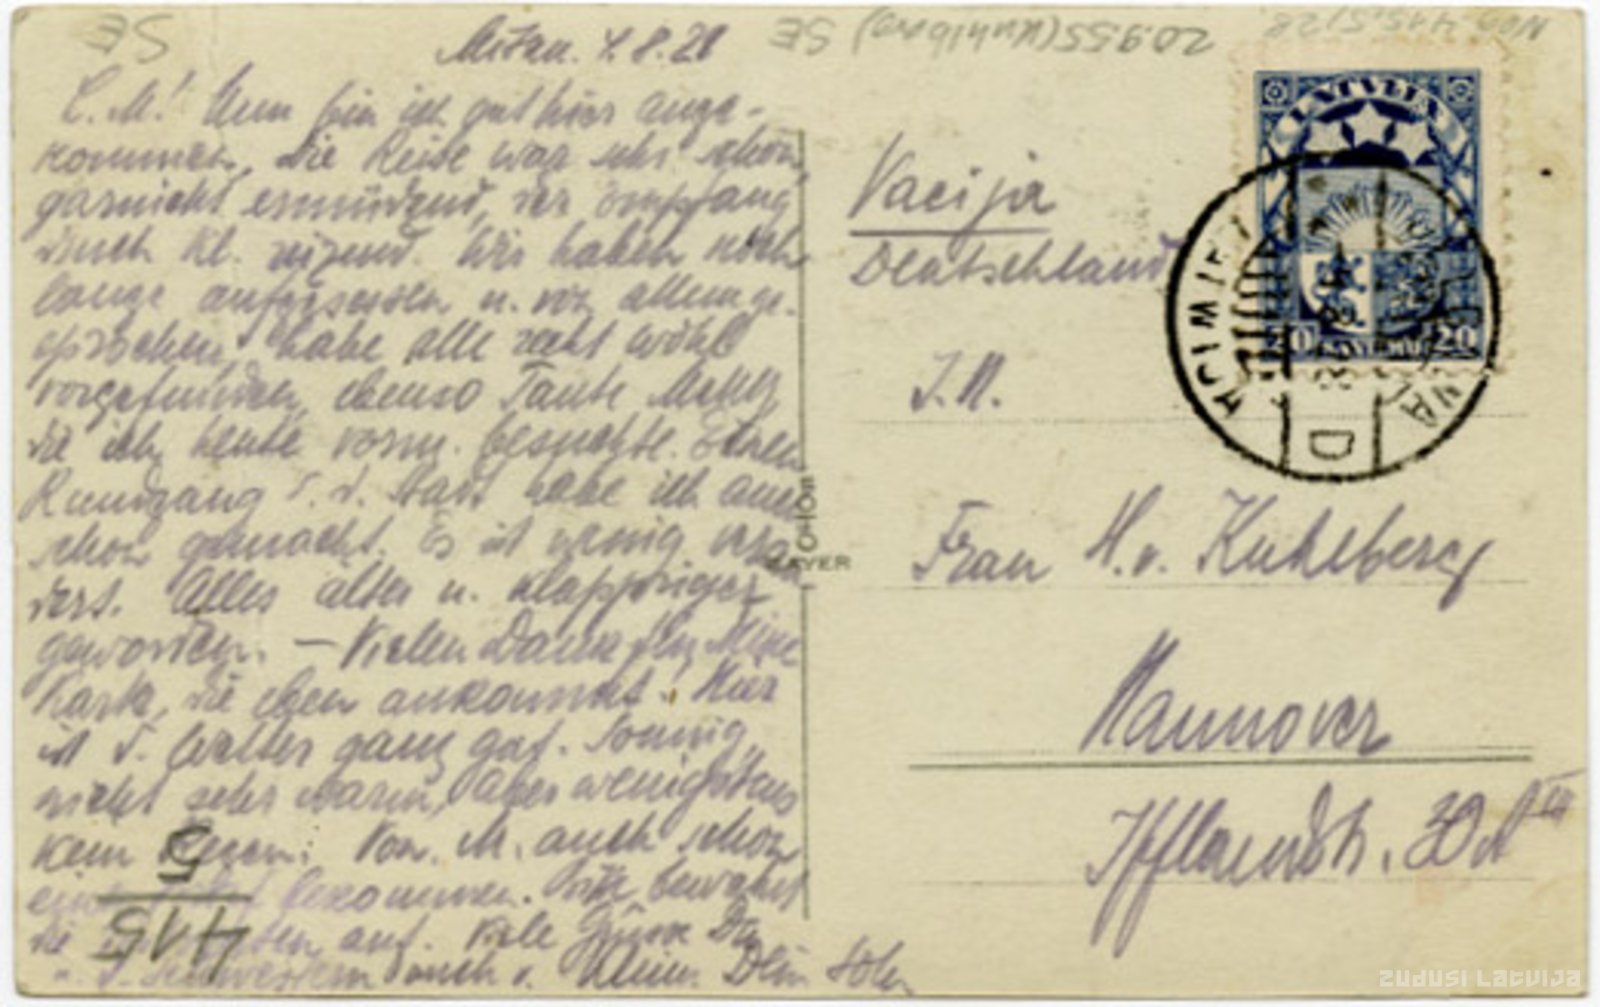 Mitau. 4.8.28
L. M! Nun bin ich gut hier ange-
kommen, die Reise war sehr schön,
garnicht ermüdend, der Empfang
durch Kl. reizend. Wir haben noch
lange aufgesessen u. von allem ge-
sprochen, habe alle recht wohl
vorgefunden, ebenso Tante
die ich heute vorm. besuchte. Einen
Rundgang d. d. Stadt habe ich auch
schon gemacht. Es ist wenig verän-
dert. Alles älter u. klappriger
geworden. – Vielen Dank für
Karte, die eben ankommt! Hier
ist d. Wetter ganz gut. Sonnig,
nicht sehr warm, aber wenigstens
kein Regen. Von M. auch schon
bekommen. Bitte bewahrt
die auf. Viele Grüsse Dir
u. d. Schwestern auch v. Dein Sohn
5
415
SE
20.9.55 (Kuhlberg) SE
415,5/28
LATVIJA
20 20
LATWIJA
D
Vācija
Deutschland
I. H.
Frau H. v. Kuhlberg
Hannover
Ifflandstr. 30 A III
ZUDUSI LATVIJA